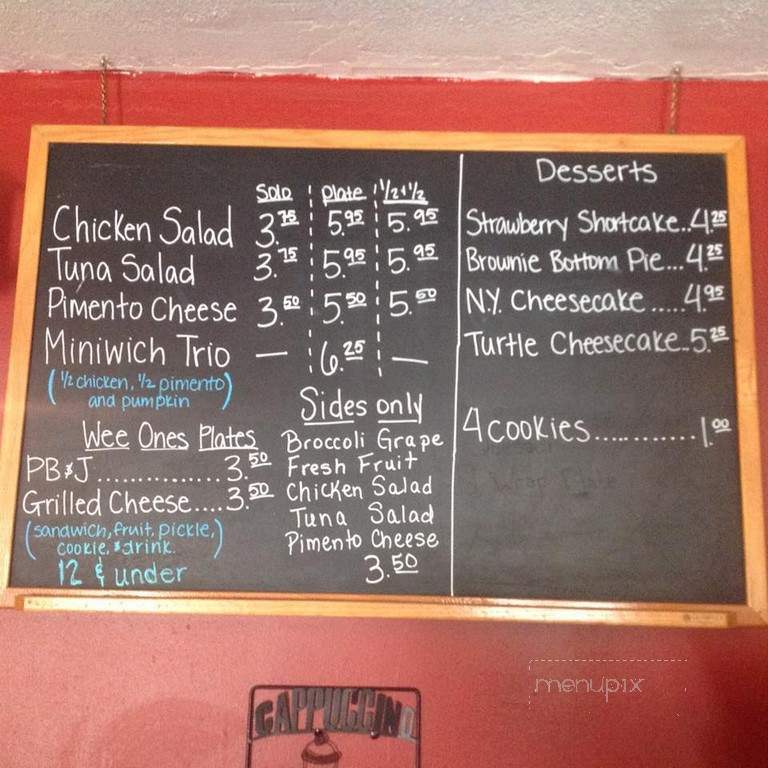 Solo Plate 1/2+1/2
Chicken Salad 3.75 5.95 5.95
Tuna Salad 3.75 5.95 5.95
Pimento Cheese 3.50 5.50 5.50
Miniwich Trio — 6.25 —
(1/2 chicken, 1/2 pimento)
and pumpkin
Wee Ones Plates
PB&J................3.50
Grilled Cheese....3.50
(sandwich, fruit, pickle,)
cookie, & drink.
12 & under
Sides only
Broccoli Grape
Fresh Fruit
Chicken Salad
Tuna Salad
Pimento Cheese
3.50
Desserts
Strawberry Shortcake..4.25
Brownie Bottom Pie...4.25
N.Y. Cheesecake.....4.95
Turtle Cheesecake..5.25
4 cookies............1.00
CAPPUCCINO
menupix